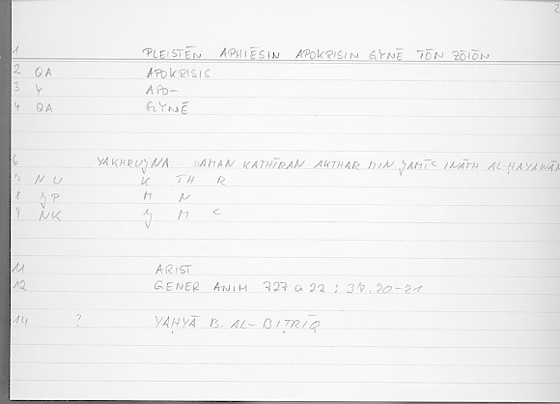 2
1 PLEISTĒN APHIĒSIN APOKRISIN GYNĒ TŌN ZŌIŌN
2 QA APOKRISIS
3 Y APO-
4 QA GYNĒ
6 YAKHRUǦNA DAMAN KATHĪRAN AKTHAR MIN ǦAMĪᶜ INĀTH AL-ḤAYAWĀN
N U K TH R
8 ǦP M N
9 NK Ǧ M ᶜ
11 ARIST
12 GENER ANIM 727 a 22 ; 37.20-21
14 ? YAḤYĀ B. AL-BIṬRĪQ